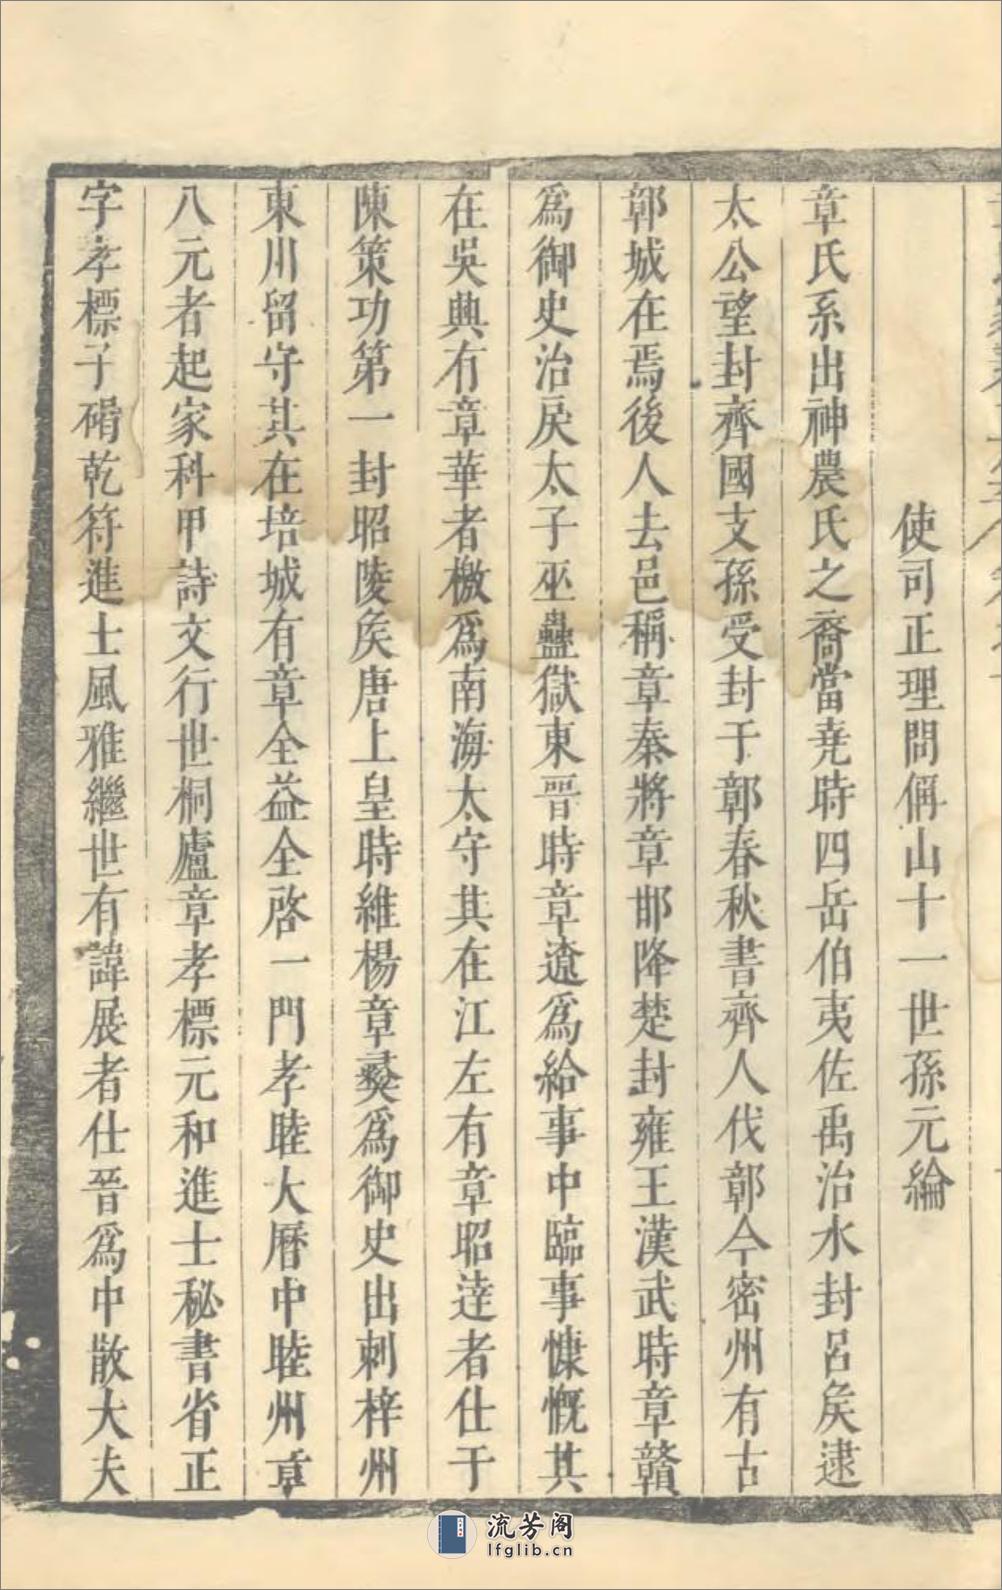 使司正理問偁山十一世孫元綸
章氏系出神農氏之裔當堯時四岳伯夷佐禹治水封呂矦逮
太公望封齊國支孫受封于鄣春秋書齊人伐鄣今密州有古
鄣城在焉後人去邑稱章秦將章邯降楚封雍王漢武時章贛
爲御史治戾太子巫蠱獄東晉時章遼爲給事中臨事慷慨其
在吳興有章華者檄爲南海太守其在江左有章昭逹者仕于
陳策功第一封昭陵矦唐上皇時維楊章彝爲御史出刺梓州
東川留守其在培城有章全益全啓一門孝睦大曆中睦州章
八元者起家科甲詩文行世桐廬章孝標元和進士秘書省正
字孝標子碣乾符進士風雅繼世有諱展者仕晉爲中散大夫
流芳阁
lfglib.cn